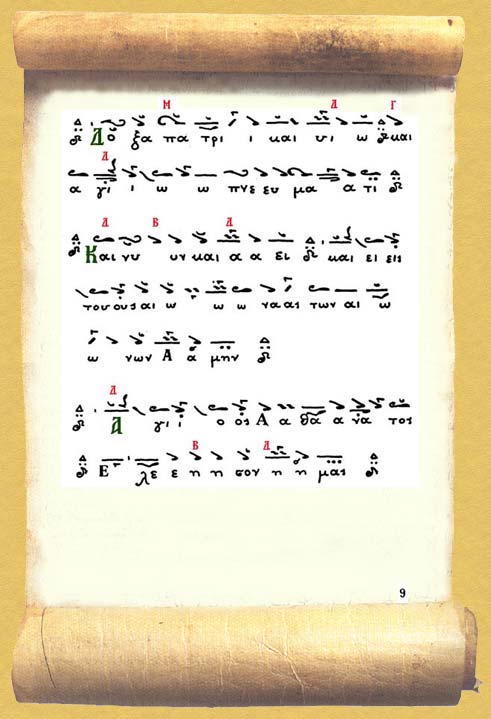 Μ Δ Γ
Δό ξα πα τρι ι και υι ω και
Δ
α γι ι ω ω πνε ευ μα α τι
Δ Β Δ
Και νυ υν και α α ει και ει εις
τους ους αι ω ω ω να ας των αι ω
ω νων Α α μην
Δ
Α γι ι ο ος Α α θα α να τος
Β Δ
Ε λε ε η η σον η η μας
9